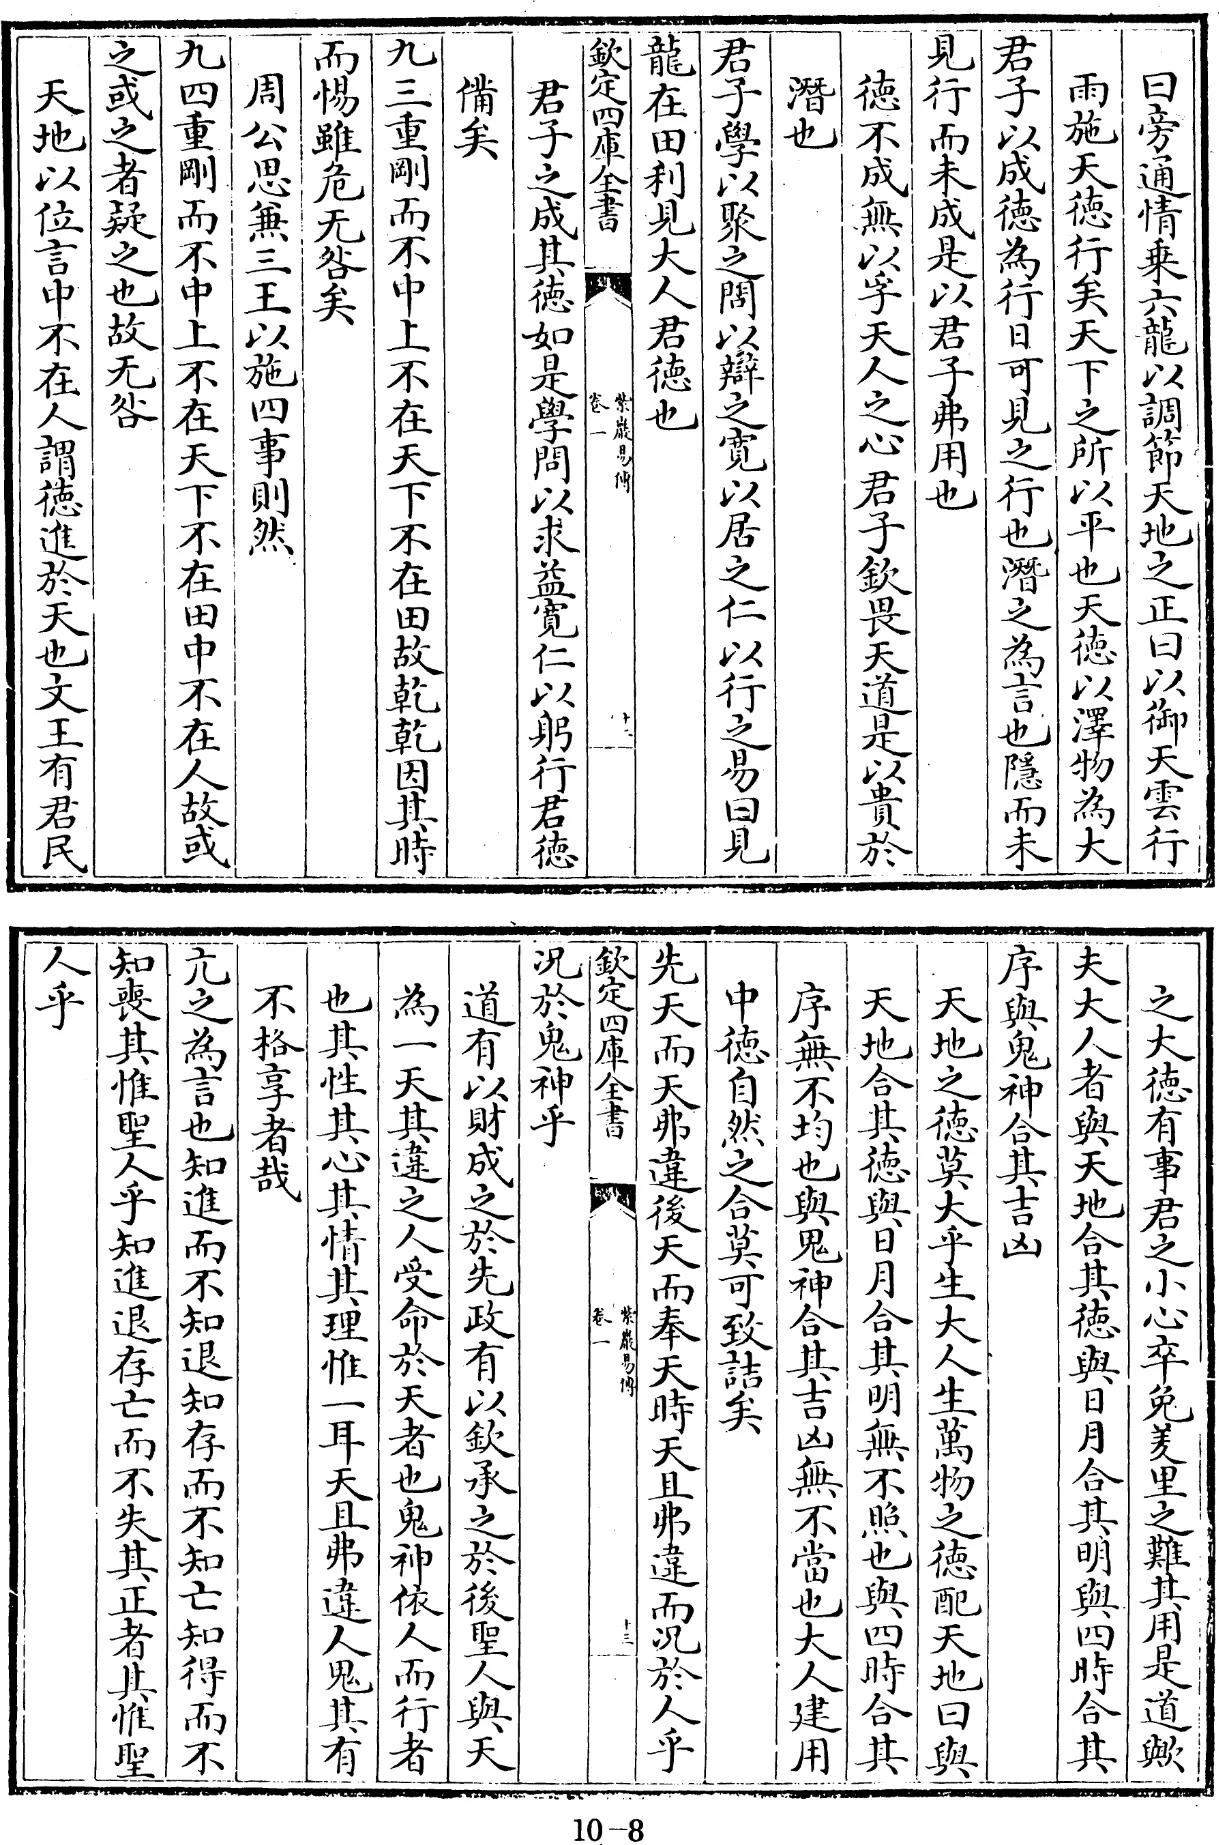 曰旁通情乗六龍以調節天地之正曰以御天雲行
雨施天徳行矣天下之所以平也天徳以澤物為大
君子以成徳為行日可見之行也潛之為言也隱而未
見行而未成是以君子弗用也
徳不成無以孚天人之心君子欽畏天道是以貴於
潛也
君子學以聚之問以辯之寛以居之仁以行之易曰見
龍在田利見大人君徳也
欽定四庫全書
紫巖易傳
卷一
十二
君子之成其徳如是學問以求益寛仁以躬行君徳
備矣
九三重剛而不中上不在天下不在田故乾乾因其時
而惕雖危无咎矣
周公思兼三王以施四事則然
九四重剛而不中上不在天下不在田中不在人故或
之或之者疑之也故无咎
天地以位言中不在人謂徳進於天也文王有君民
之大徳有事君之小心卒免羑里之難其用是道歟
夫大人者與天地合其徳與日月合其明與四時合其
序與鬼神合其吉凶
天地之徳莫大乎生大人生萬物之徳配天地曰與
天地合其徳與日月合其明無不照也與四時合其
序無不均也與鬼神合其吉凶無不當也大人建用
中徳自然之合莫可致詰矣
先天而天弗違後天而奉天時天且弗違而况於人乎
欽定四庫全書
紫巖易傳
卷一
十三
况於鬼神乎
道有以財成之於先政有以欽承之於後聖人與天
為一天其違之人受命於天者也鬼神依人而行者
也其性其心其情其理惟一耳天且弗違人鬼其有
不格享者哉
亢之為言也知進而不知退知存而不知亡知得而不
知喪其惟聖人乎知進退存亡而不失其正者其惟聖
人乎
10-8